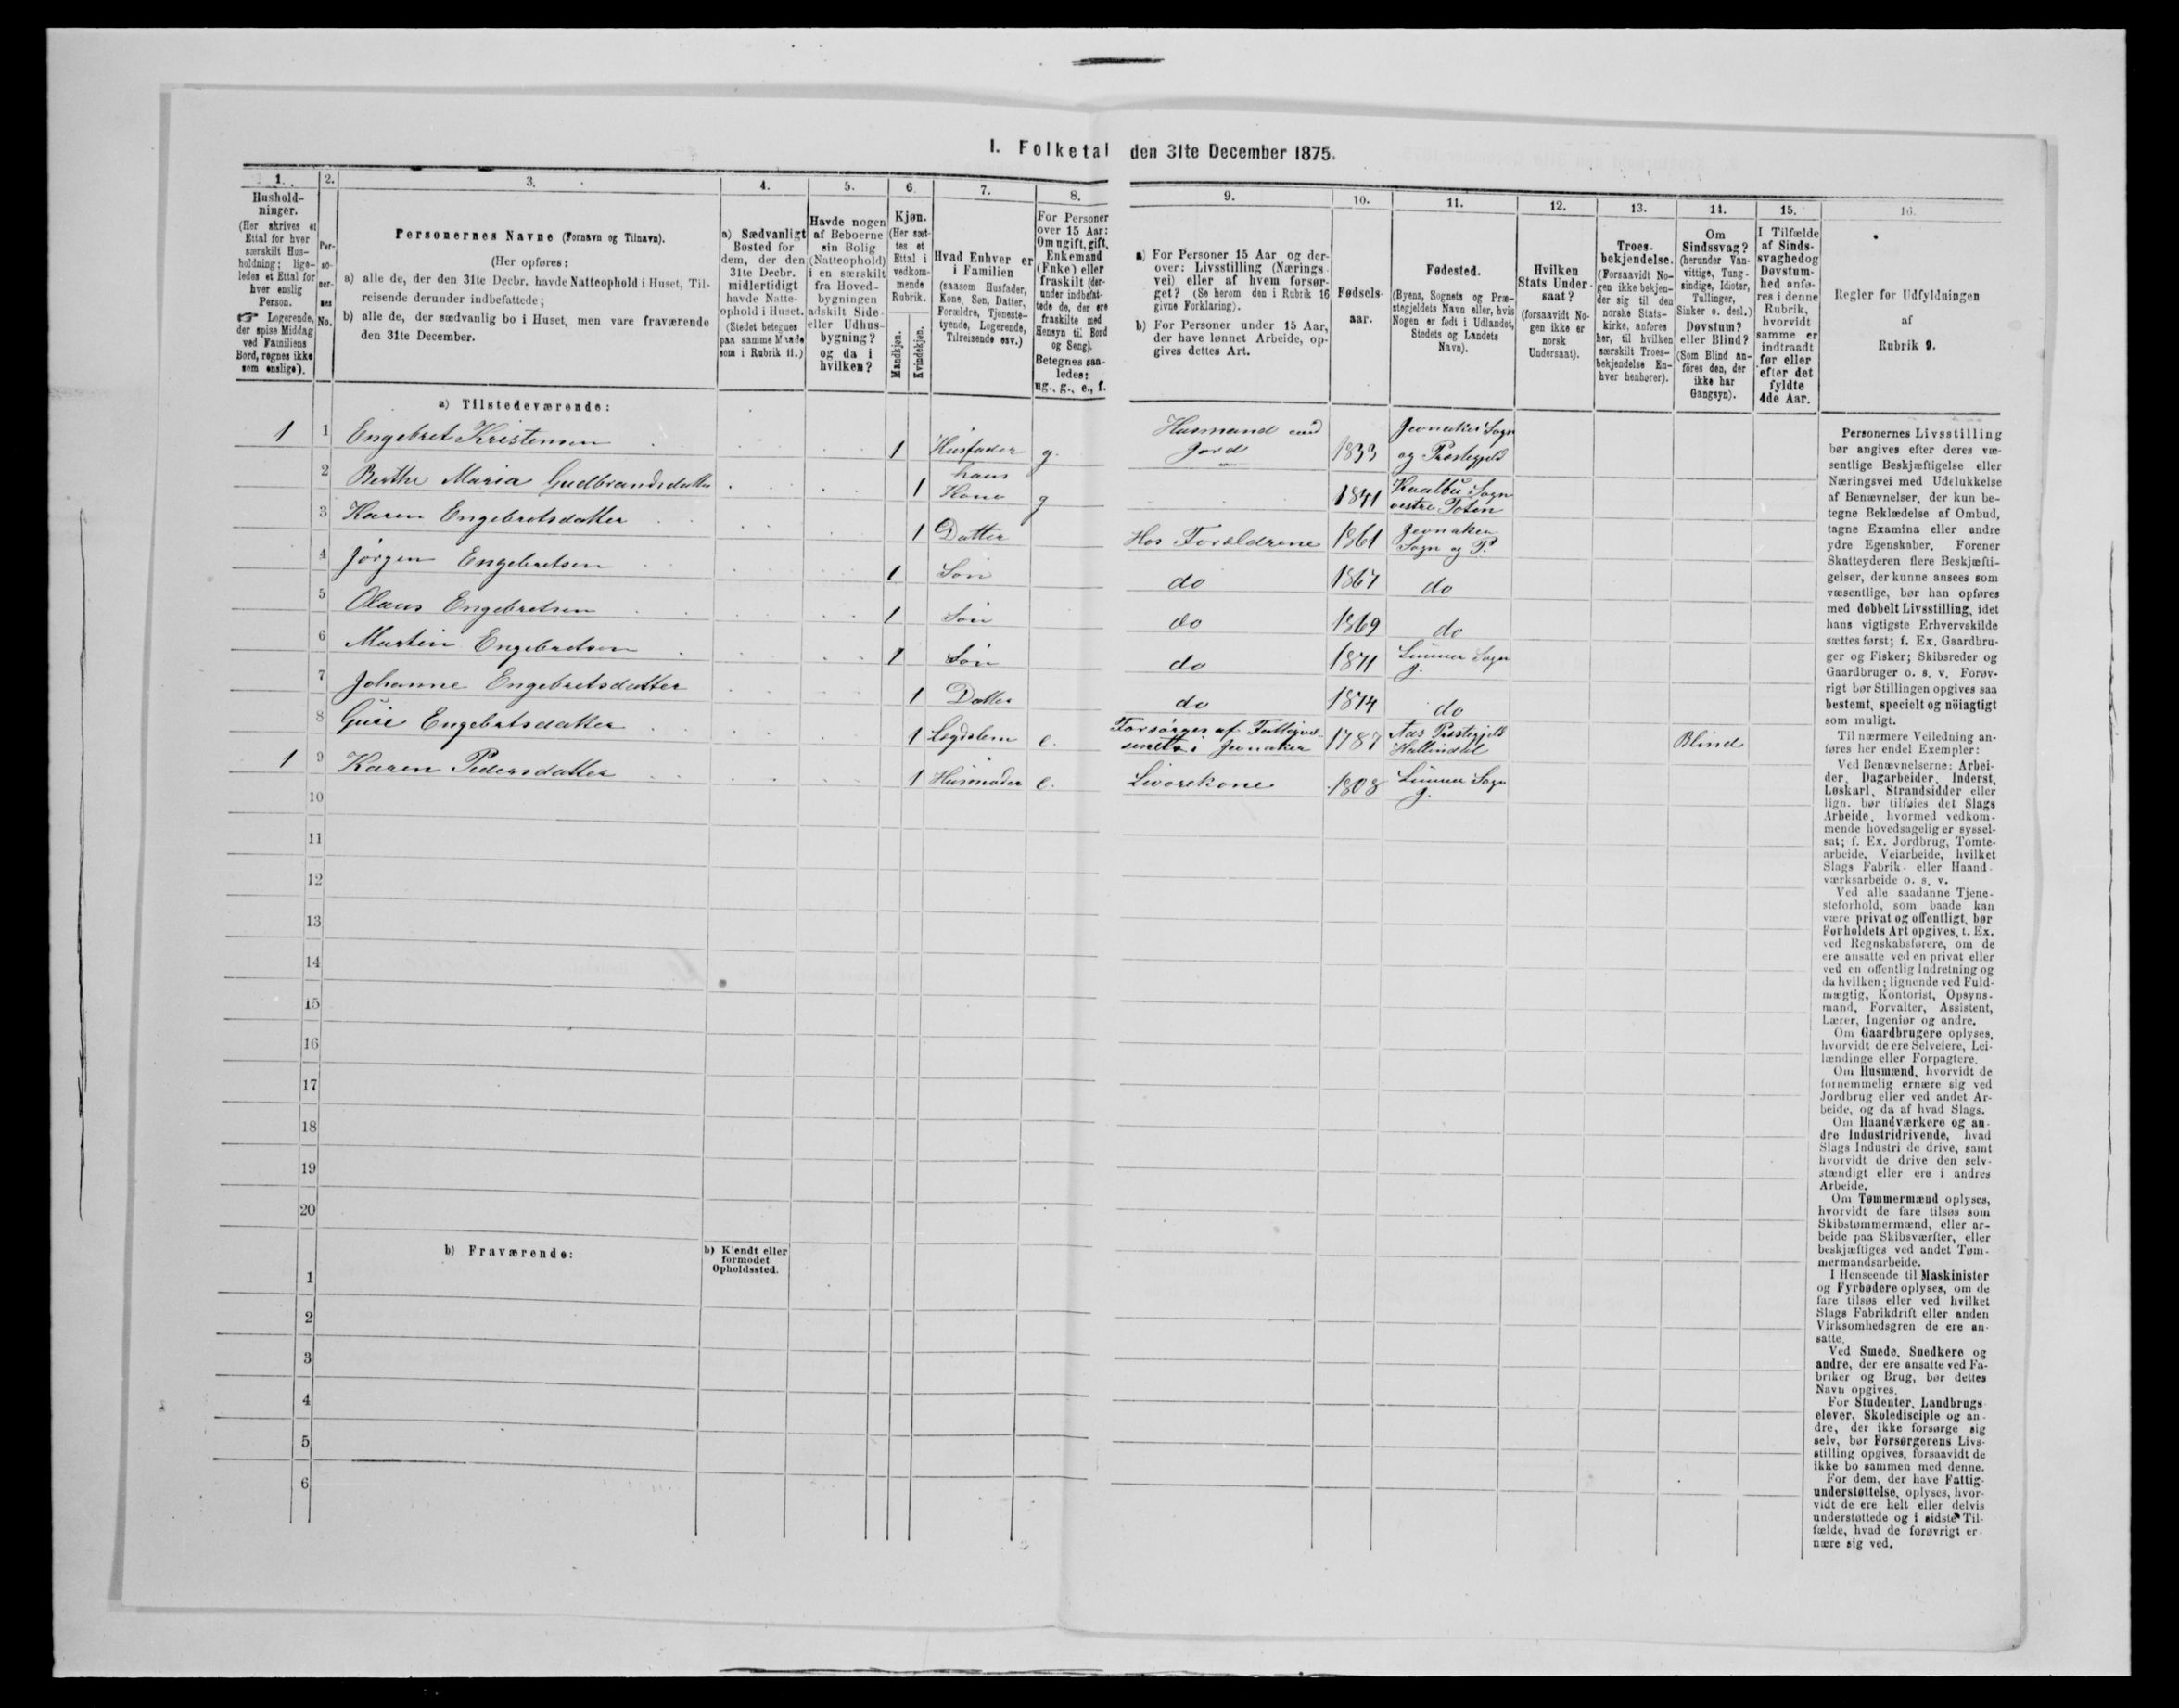 I. Folketal den 31te December 1875.
1. 2. 3. 4. 5. 6. 7. 8. 9. 10. 11. 12. 13. 14. 15. 16.
Hushold-
ninger.
(Her skrives et
Ettal for hver
særskilt Hus-
holdning; lige-
ledes et Ettal for
hver enslig
Person.
☞ Logerende,
der spise Middag
ved Familiens
Bord, regnes ikke
som enslige).
Per-
so-
ner-
nes
No.
Personernes Navne (Fornavn og Tilnavn).
(Her opføres:
a) alle de, der den 31te Decbr. havde Natteophold i Huset, Til-
reisende derunder indbefattede;
b) alle de, der sædvanlig bo i Huset, men vare fraværende
den 31te December.
a) Sædvanligt
Bosted for
dem, der den
31te Decbr.
midlertidigt
havde Natte-
ophold i Huset.
(Stedet betegnes
paa samme Maade
som i Rubrik 11.)
Havde nogen
af Beboerne
sin Bolig
(Natteophold)
i en særskilt
fra Hoved-
bygningen
adskilt Side-
eller Udhus-
bygning?
og da i
hvilken?
Kjøn.
(Her sæt-
tes et
Ettal i
vedkom-
mende
Rubrik.
Mandkjøn.
Kvindekjøn.
Hvad Enhver er
i Familien
(saasom Husfader,
Kone, Søn, Datter,
Forældre, Tjeneste-
tyende, Logerende,
Tilreisende osv.)
For Personer
over 15 Aar:
Om ugift, gift,
Enkemand
(Enke) eller
fraskilt (der-
under indbefat-
tede de, der ere
fraskilte med
Hensyn til Bord
og Seng).
Betegnes saa-
ledes:
ug., g., e., f.
a) For Personer 15 Aar og der-
over: Livsstilling (Nærings-
vei) eller af hvem forsør-
get? (Se herom den i Rubrik 16
givne Forklaring).
b) For Personer under 15 Aar,
der have lønnet Arbeide, op-
gives dettes Art.
Fødsels-
aar.
Fødested.
(Byens, Sognets og Præ-
stegjeldets Navn eller, hvis
Nogen er født i Udlandet,
Stedets og Landets
Navn).
Hvilken
Stats Under-
saat?
(forsaavidt No-
gen ikke er
norsk
Undersaat).
Troes-
bekjendelse.
(Forsaavidt No-
gen ikke bekjen-
der sig til den
norske Stats-
kirke, anføres
her, til hvilken
særskilt Troes-
bekjendelse En-
hver henhører).
Om
Sindssvag?
(herunder Van-
vittige, Tung-
sindige, Idioter,
Tullinger,
Sinker o. desl.)
Døvstum?
eller Blind?
(Som Blind an-
føres den, der
ikke har
Gangsyn).
I Tilfælde
af Sinds-
svaghed og
Døvstum-
hed anfø-
res i denne
Rubrik,
hvorvidt
samme er
indtraadt
før eller
efter det
fyldte
4de Aar.
Regler for Udfyldningen
af
Rubrik 9.
a) Tilstedeværende:
1 1 Engebret Kristensen 1 Husfader g. Husmand med Jord 1833 Jevnaker Sogn og Prestegjeld
2 Berthe Maria Gudbrandsdatter 1 hans Kone g 1841 Kaalbu Sogn vestre Toten
3 Karen Engebretsdatter 1 Datter Hos Forældrene 1861 Jevnaker Sogn og P.
4 Jörgen Engebretsen 1 Sön do 1867 do
5 Olaus Engebretsen 1 Sön do 1869 do
6 Martin Engebretsen 1 Sön do 1871 Lunner Sogn J.
7 Johanne Engebretsdatter 1 Datter do 1874 do
8 Guri Engebretsdatter 1 Lægdslem e. Forsörges af Fattigvæsenet i Jevnaker 1787 Aas Prestegjeld Hallindal Blind
1 9 Karen Pedersdatter 1 Husmoder e. Livörekone 1808 Lunner Sogn J.
10
11
12
13
14
15
16
17
18
19
20
b) Fraværende:
b) Kjendt eller
formodet
Opholdssted.
1
2
3
4
5
6
Personernes Livsstilling
bør angives efter deres væ-
sentlige Beskjæftigelse eller
Næringsvei med Udelukkelse
af Benævnelser, der kun be-
tegne Beklædelse af Ombud,
tagne Examina eller andre
ydre Egenskaber. Forener
Skatteyderen flere Beskjæfti-
gelser, der kunne ansees som
væsentlige, bør han opføres
med dobbelt Livsstilling, idet
hans vigtigste Erhvervskilde
sættes først; f. Ex. Gaardbru-
ger og Fisker; Skibsreder og
Gaardbruger o. s. v. Forøv-
rigt bør Stillingen opgives saa
bestemt, specielt og nöiagtigt
som muligt.
Til nærmere Veiledning an-
føres her endel Exempler:
Ved Benævnelserne: Arbei-
der, Dagarbeider, Inderst,
Løskarl, Strandsidder eller
lign. bør tilføies det Slags
Arbeide, hvormed vedkom-
mende hovedsagelig er syssel-
sat; f. Ex. Jordbrug, Tomte-
arbeide, Veiarbeide, hvilket
Slags Fabrik- eller Haand-
værksarbeide o. s. v.
Ved alle saadanne Tjene-
steforhold, som baade kan
være privat og offentligt, bør
Forholdets Art opgives, f. Ex.
ved Regnskabsførere, om de
ere ansatte ved en privat eller
ved en offentlig Indretning og
da hvilken; lignende ved Fuld-
mægtig, Kontorist, Opsyns-
mand, Forvalter, Assistent,
Lærer, Ingeniør og andre.
Om Gaardbrugere oplyses,
hvorvidt de ere Selveiere, Lei-
lændinge eller Forpagtere.
Om Husmænd, hvorvidt de
fornemmelig ernære sig ved
Jordbrug eller ved andet Ar-
beide, og da af hvad Slags.
Om Haandværkere og an-
dre Industridrivende, hvad
Slags Industri de drive, samt
hvorvidt de drive den selv-
stændigt eller ere i andres
Arbeide.
Om Tømmermænd oplyses,
hvorvidt de fare tilsøs som
Skibstømmermænd, eller ar-
beide paa Skibsværfter, eller
beskjæftiges ved andet Tøm-
mermandsarbeide.
I Henseende til Maskinister
og Fyrbødere oplyses, om de
fare tilsøs eller ved hvilket
Slags Fabrikdrift eller anden
Virksomhedsgren de ere an-
satte.
Ved Smede, Snedkere og
andre, der ere ansatte ved Fa-
briker og Brug, bør dettes
Navn opgives.
For Studenter, Landbrugs-
elever, Skoledisciple og an-
dre, der ikke forsørge sig
selv, bør Forsørgerens Livs-
stilling opgives, forsaavidt de
ikke bo sammen med denne.
For dem, der have Fattig-
understøttelse, oplyses, hvor-
vidt de ere helt eller delvis
understøttede og i sidste Til-
fælde, hvad de forøvrigt er-
nære sig ved.